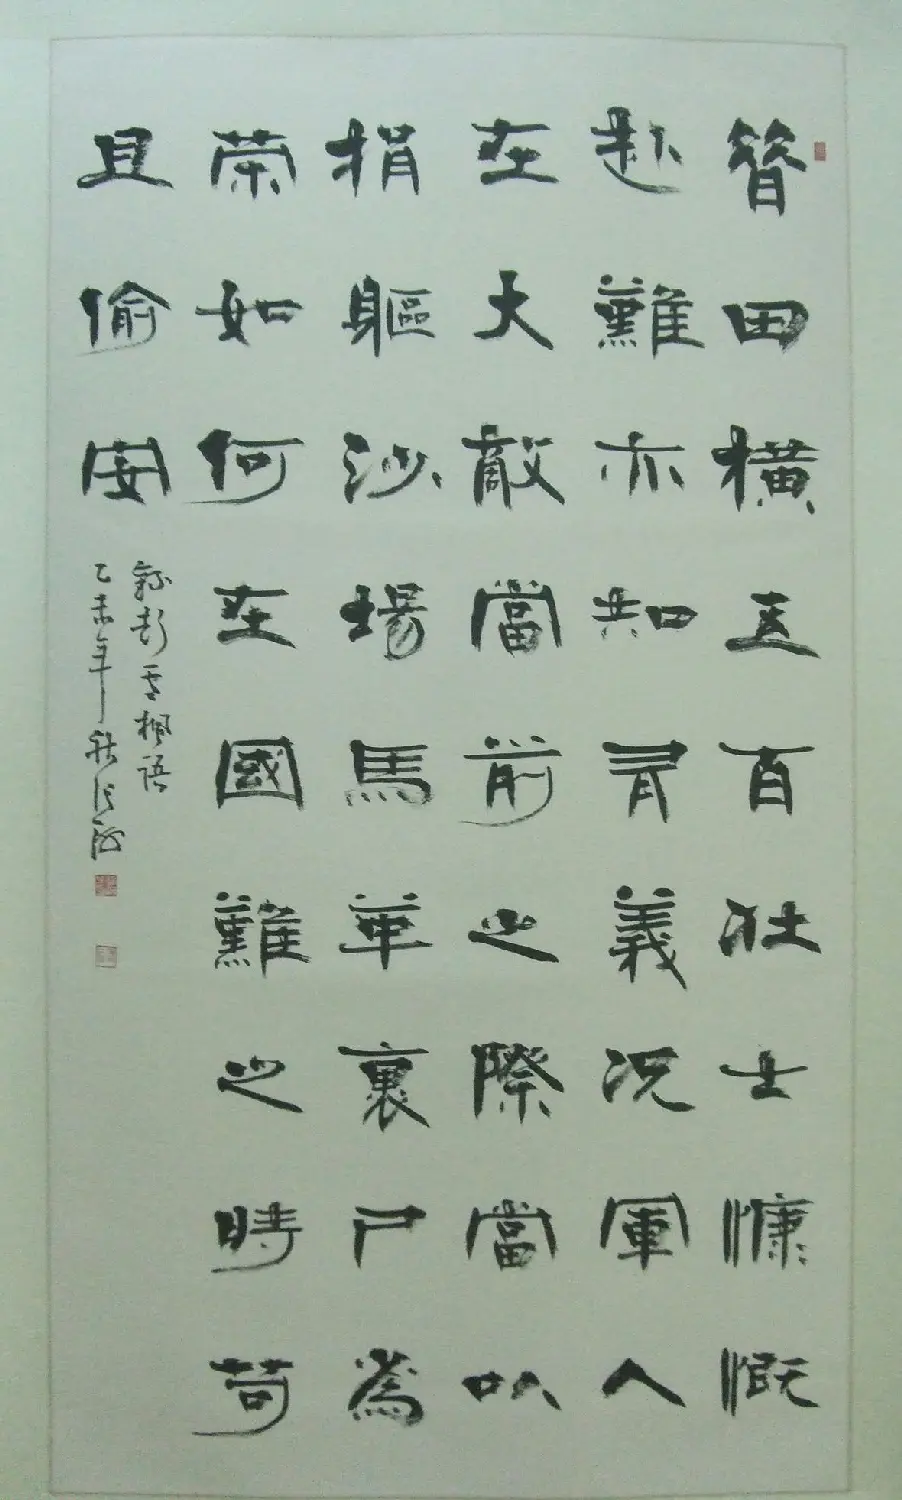 昔田橫五百壯士慷慨
赴難亦知有義況軍人
在大敵當前之際當以
捐軀沙場馬革裹尸為
榮如何在國難之時苟
且偷安
錄彭雪楓語
乙未年秋